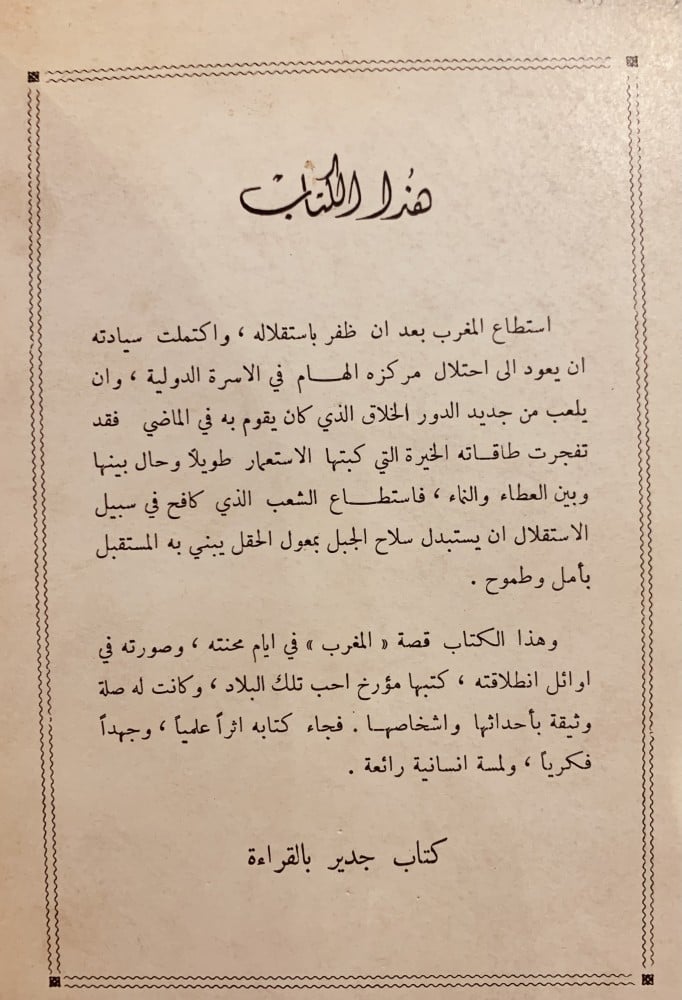 هٰذا الكتاب
استطاع المغرب بعد ان ظفر باستقلاله ، واكتملت سيادته
ان يعود الى احتلال مركزه الهام في الاسرة الدولية ، وان
يلعب من جديد الدور الخلاق الذي كان يقوم به في الماضي فقد
تفجرت طاقاته الخيرة التي كبتها الاستعمار طويلاً وحال بينها
وبين العطاء والنماء ، فاستطاع الشعب الذي كافح في سبيل
الاستقلال ان يستبدل سلاح الجبل بمعول الحقل يبني به المستقبل
بأمل وطموح .
وهذا الكتاب قصة « المغرب » في ايام محنته ، وصورته في
اوائل انطلاقته ، كتبها مؤرخ احب تلك البلاد ، وكانت له صلة
وثيقة بأحداثها واشخاصها . فجاء كتابه اثراً علمياً ، وجهداً
فكرياً ، ولمسة انسانية رائعة .
كتاب جدير بالقراءة